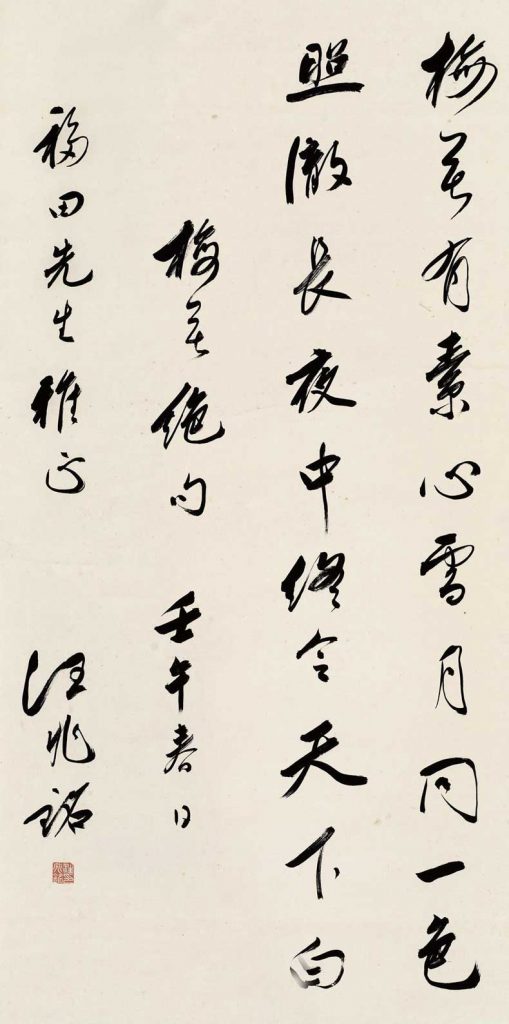 梅花有素心雪月同一色
照澈長夜中終令天下白
梅花絶句 壬午春日
福田先生雅正 汪兆銘